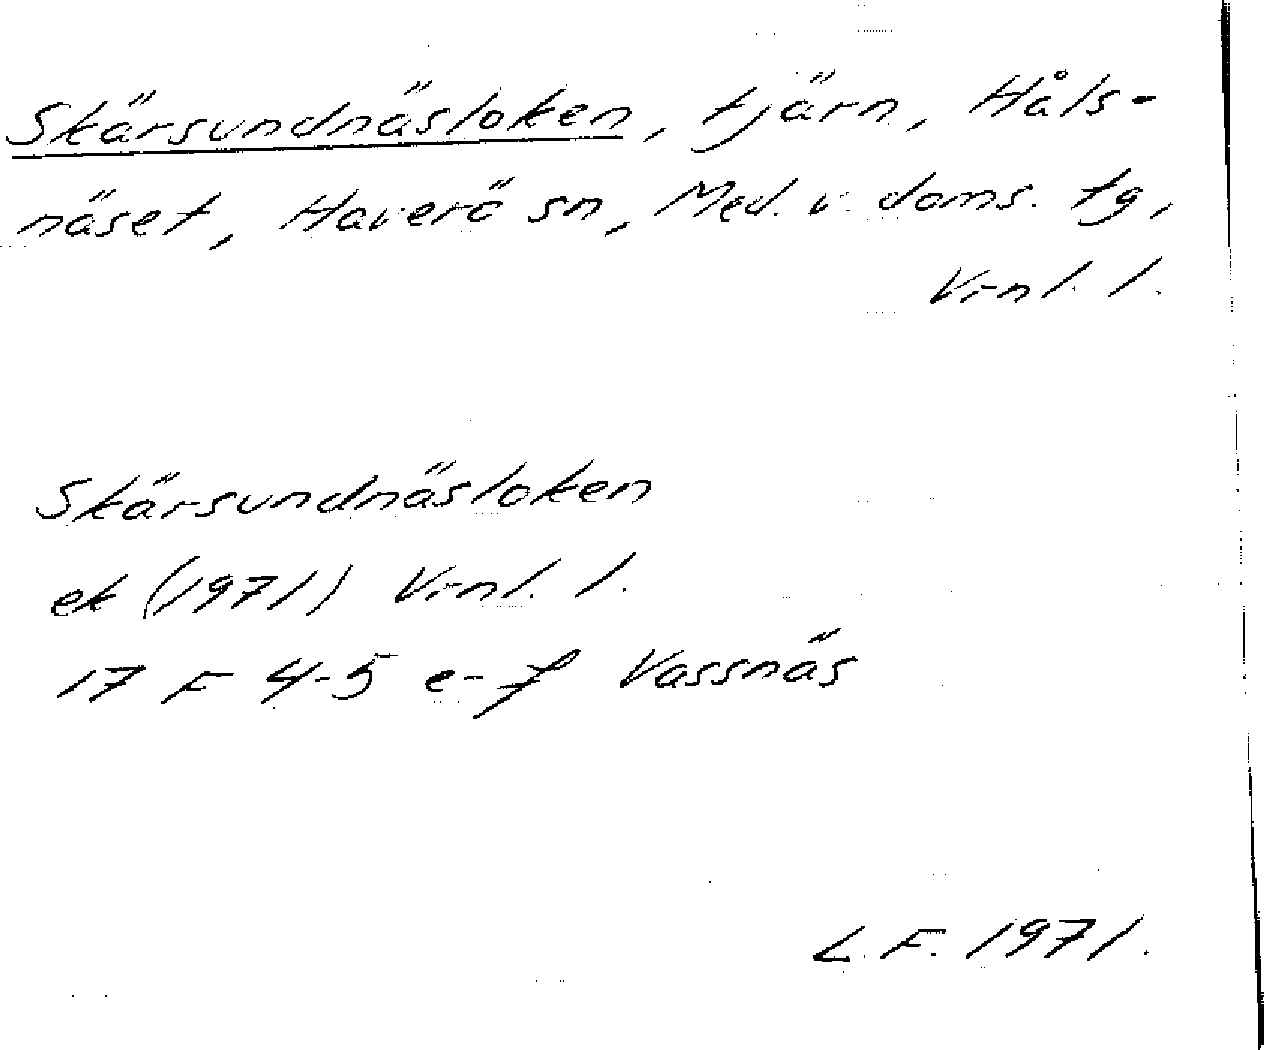 Skärsundnäsloken, tjärn, Håls-
näset, Haverö sn, Med. v. doms. tg,
Vrnl. l.
Skärsundnäsloken
ek (1971) Vrnl. l.
17 F 4-5 e-f Vassnäs
L.F. 1971.